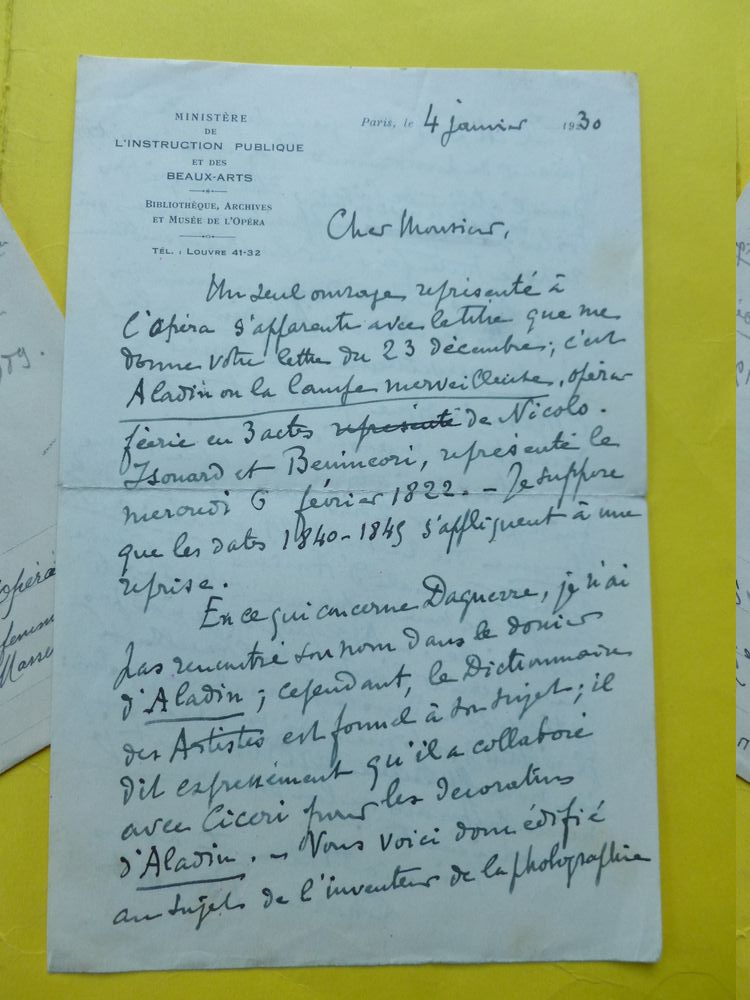 MINISTÈRE
DE
L'INSTRUCTION PUBLIQUE
ET DES
BEAUX-ARTS
BIBLIOTHÈQUE, ARCHIVES
ET MUSÉE DE L'OPÉRA
TÉL. : LOUVRE 41-32
Paris, le 4 janvier 1930
Cher Monsieur,
Un seul ouvrage représenté à
l'Opéra s'apparente avec le titre que me
donne votre lettre du 23 décembre ; c'est
Aladin ou la lampe merveilleuse, opéra-
féerie en 3 actes représenté de Nicolo-
Isouard et Benincori, représenté le
mercredi 6 février 1822. – Je suppose
que les dates 1840-1845 s'appliquent à une
reprise.
En ce qui concerne Daguerre, je n'ai
pas rencontré son nom dans le dossier
d'Aladin ; cependant, le Dictionnaire
des Artistes est formel à son sujet ; il
dit expressément qu'il a collaboré
avec Ciceri pour les décorations
d'Aladin. – Nous voici donc édifié
au sujet de l'inventeur de la photographie
opéra